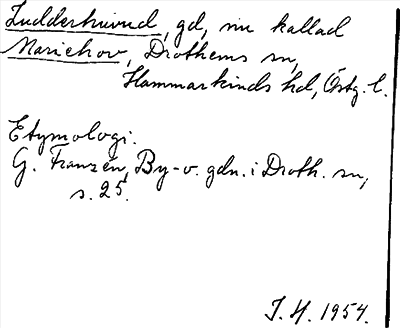 Ludderhuvud, gd, nu kallad
Mariehov, Drothems sn,
Hammarkinds hd, Östg. l.
Etymologi.
G. Franzén, By-o. gdn. i Droth. sn,
s. 25.
J. H. 1954.